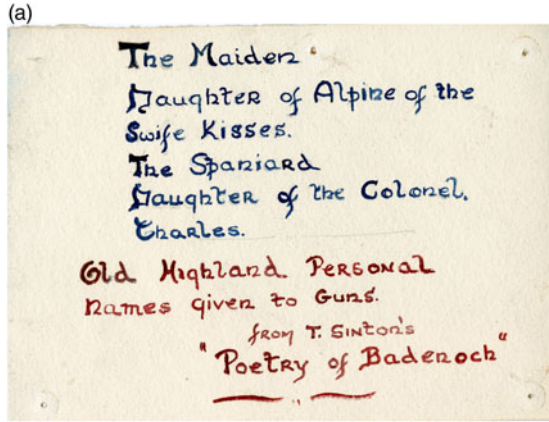 (a)
The Maiden
Daughter of Alpine of the
Swife Kisses.
The Spaniard
Daughter of the Colonel.
Charles.
Old Highland Personal
names given to Guns.
from T. Sinton's
"Poetry of Badenoch"